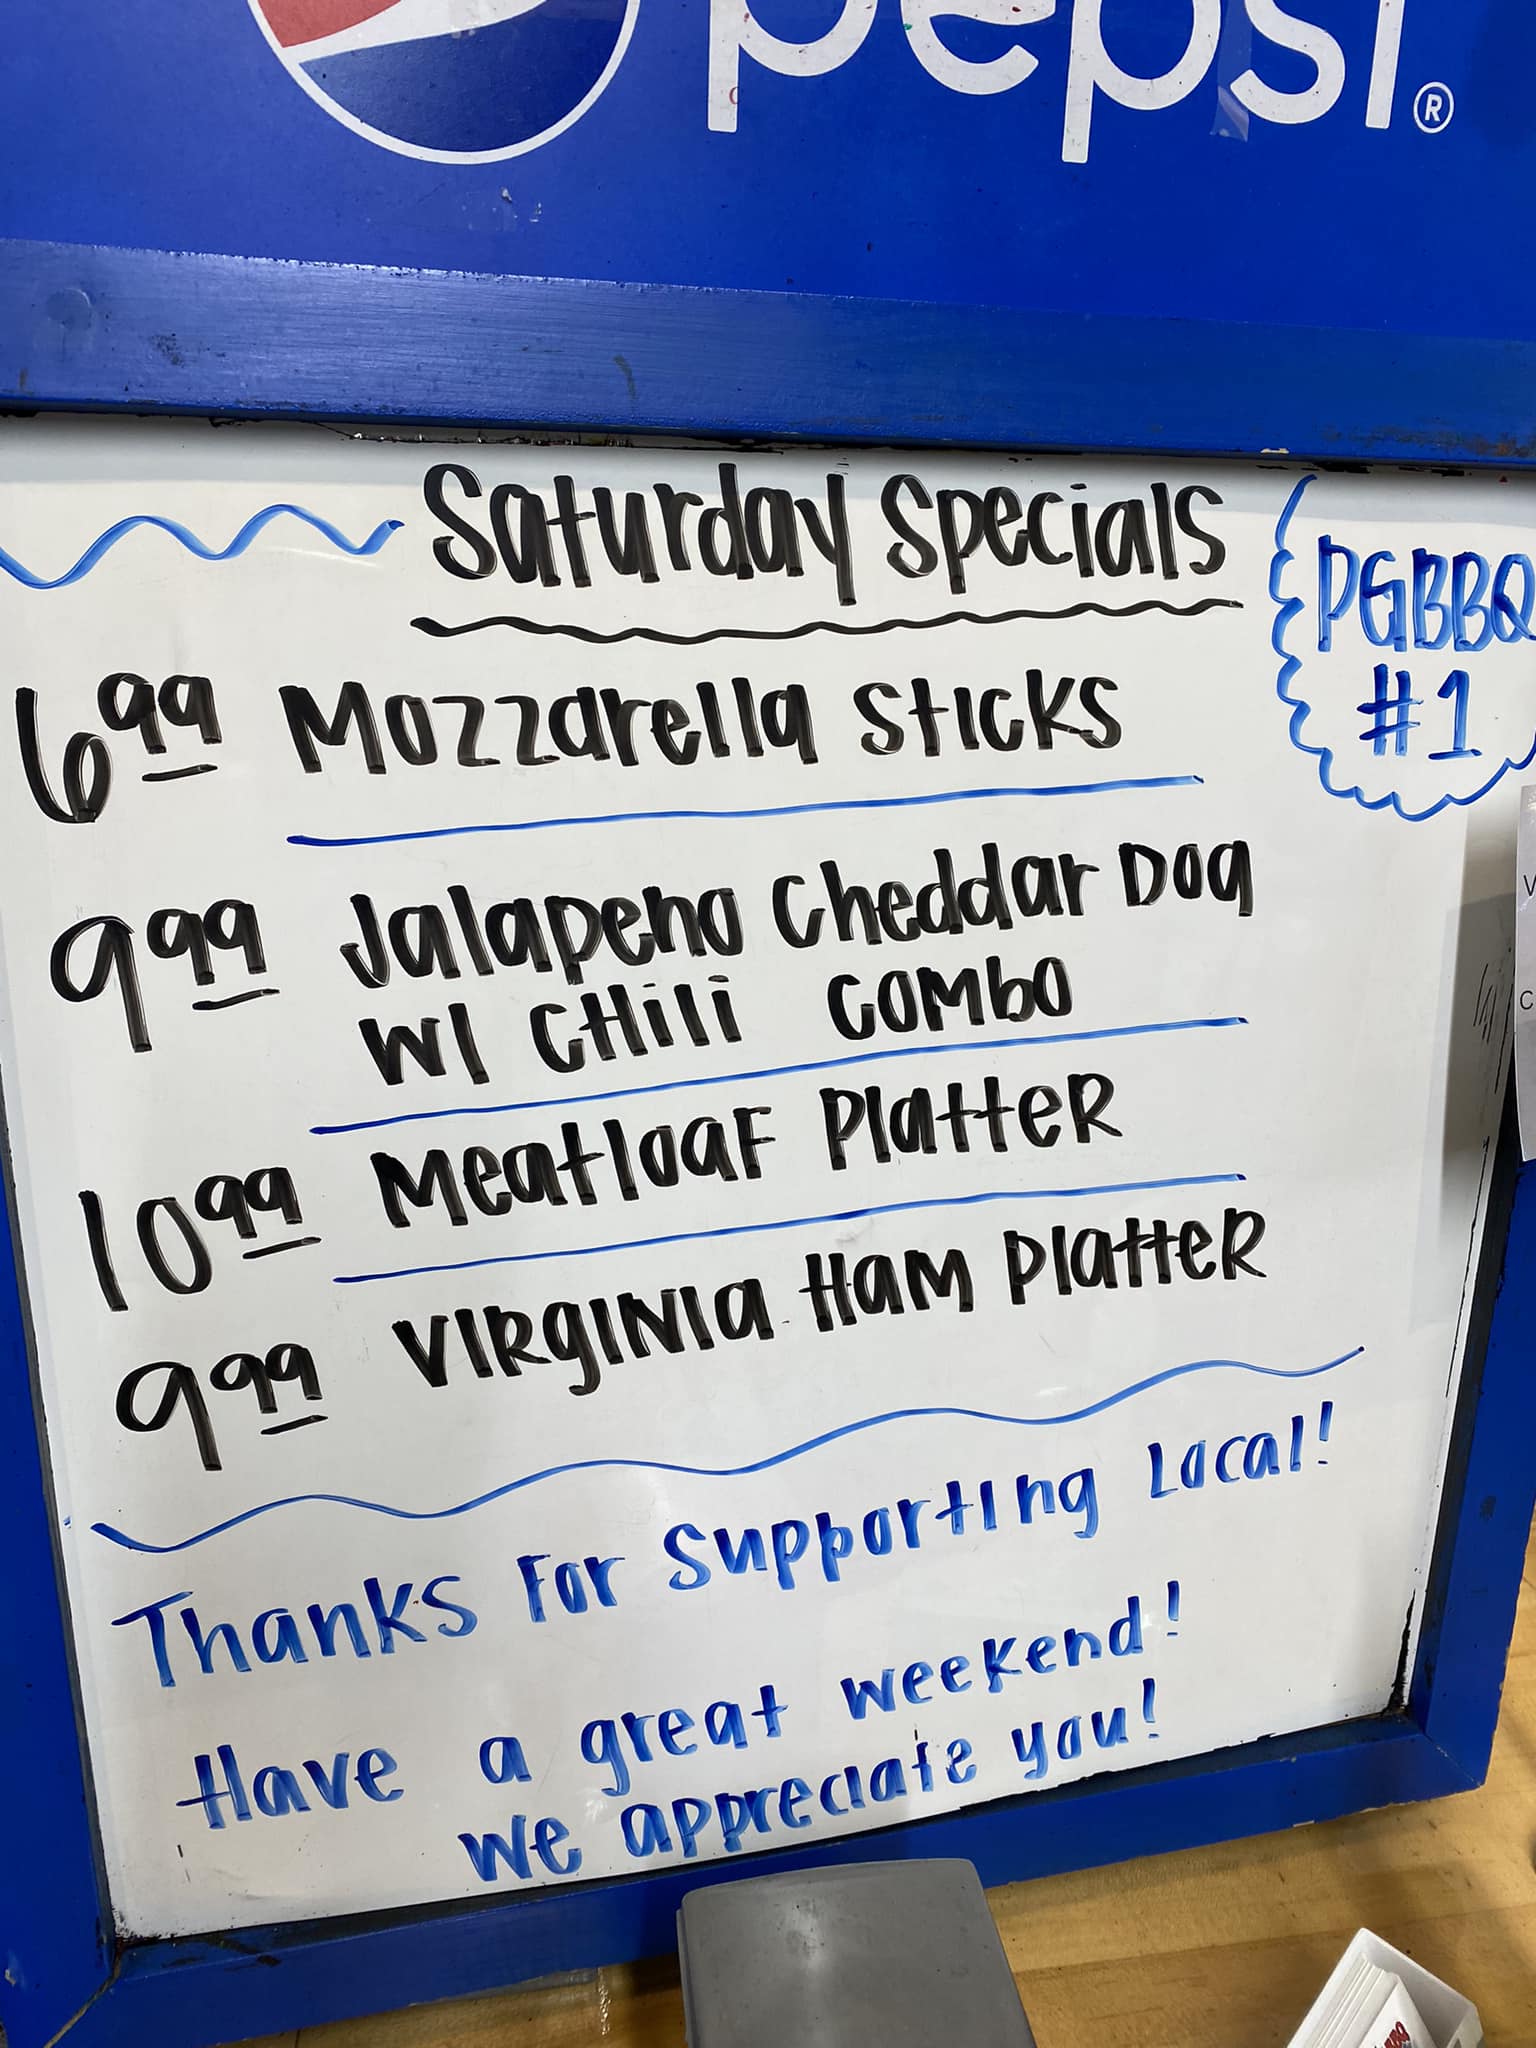 pepsi®
Saturday Specials
PGBBQ
#1
6.99 Mozzarella Sticks
9.99 Jalapeno Cheddar Dog
W/ Chili Combo
10.99 Meatloaf Platter
9.99 Virginia Ham Platter
Thanks For Supporting Local!
Have a great weekend!
We appreciate you!